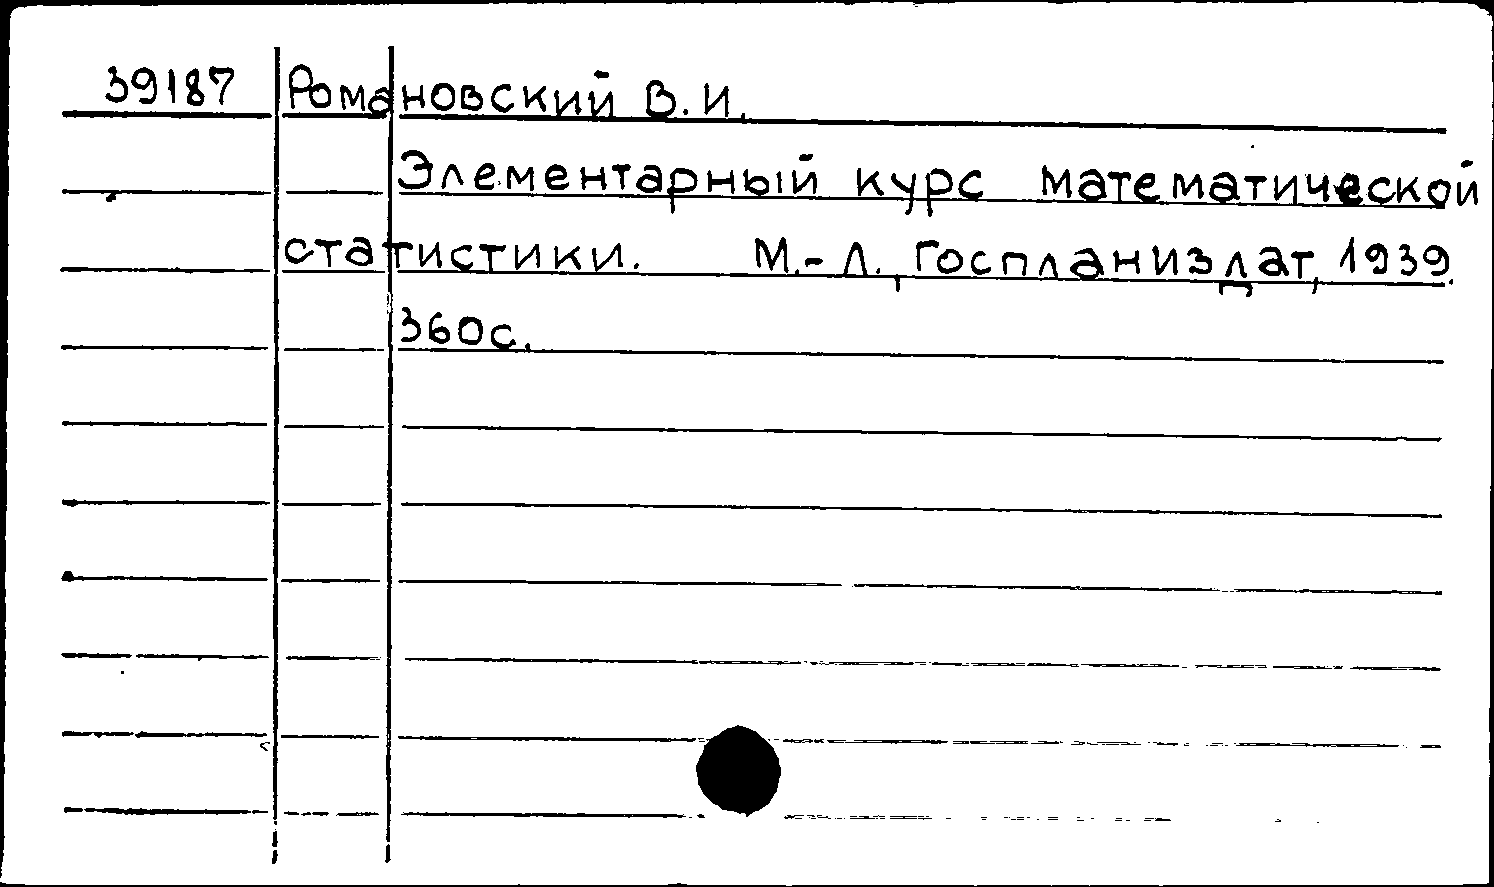 39187 Романовский В.И.
Элементарный курс математической
статистики. М.-Л., Госпланиздат, 1939.
360с.